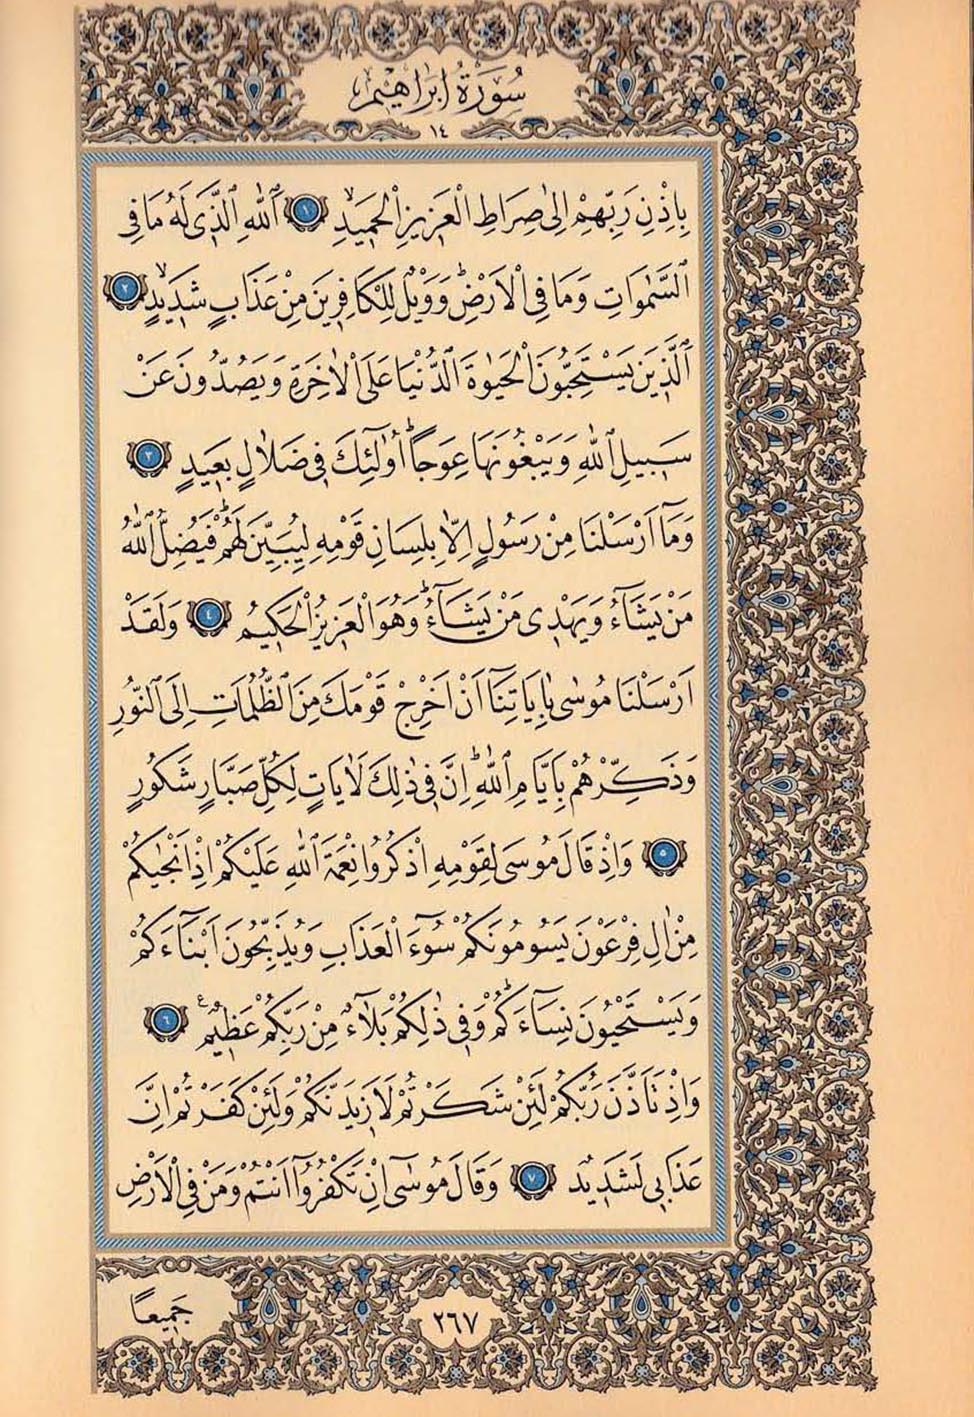 سُورَةُ اِبْرَاهِيمَ
١٤
بِاِذْنِ رَبِّهِمْ اِلٰى صِرَاطِ الْعَزِيزِ الْحَمِيدِۙ ١ اَللّٰهِ الَّذِى لَهُ مَا فِى
السَّمٰوَاتِ وَمَا فِى الْاَرْضِۜ وَوَيْلٌ لِلْكَافِرِينَ مِنْ عَذَابٍ شَدِيدٍۙ ٢
اَلَّذِينَ يَسْتَحِبُّونَ الْحَيٰوةَ الدُّنْيَا عَلَى الْاٰخِرَةِ وَيَصُدُّونَ عَنْ
سَبِيلِ اللّٰهِ وَيَبْغُونَهَا عِوَجًاۜ اُو۬لٰٓئِكَ فِى ضَلَالٍ بَعِيدٍ ٣
وَمَٓا اَرْسَلْنَا مِنْ رَسُولٍ اِلَّا بِلِسَانِ قَوْمِهِ لِيُبَيِّنَ لَهُمْۜ فَيُضِلُّ اللّٰهُ
مَنْ يَشَٓاءُ وَيَهْدِى مَنْ يَشَٓاءُۜ وَهُوَ الْعَزِيزُ الْحَكِيمُ ٤ وَلَقَدْ
اَرْسَلْنَا مُوسٰى بِاٰيَاتِنَٓا اَنْ اَخْرِجْ قَوْمَكَ مِنَ الظُّلُمَاتِ اِلَى النُّورِ
وَذَكِّرْهُمْ بِاَيَّامِ اللّٰهِۜ اِنَّ فِى ذٰلِكَ لَاٰيَاتٍ لِكُلِّ صَبَّارٍ شَكُورٍ
٥ وَاِذْ قَالَ مُوسٰى لِقَوْمِهِ اذْكُرُوا نِعْمَةَ اللّٰهِ عَلَيْكُمْ اِذْ اَنْجٰيكُمْ
مِنْ اٰلِ فِرْعَوْنَ يَسُومُونَكُمْ سُٓوءَ الْعَذَابِ وَيُذَبِّحُونَ اَبْنَٓاءَكُمْ
وَيَسْتَحْيُونَ نِسَٓاءَكُمْۜ وَفِى ذٰلِكُمْ بَلَٓاءٌ مِنْ رَبِّكُمْ عَظِيمٌ ع ٦
وَاِذْ تَاَذَّنَ رَبُّكُمْ لَئِنْ شَكَرْتُمْ لَاَزِيدَنَّكُمْ وَلَئِنْ كَفَرْتُمْ اِنَّ
عَذَابِى لَشَدِيدٌ ٧ وَقَالَ مُوسٰٓى اِنْ تَكْفُرُٓوا اَنْتُمْ وَمَنْ فِى الْاَرْضِ
جَمِيعًا
٢٦٧